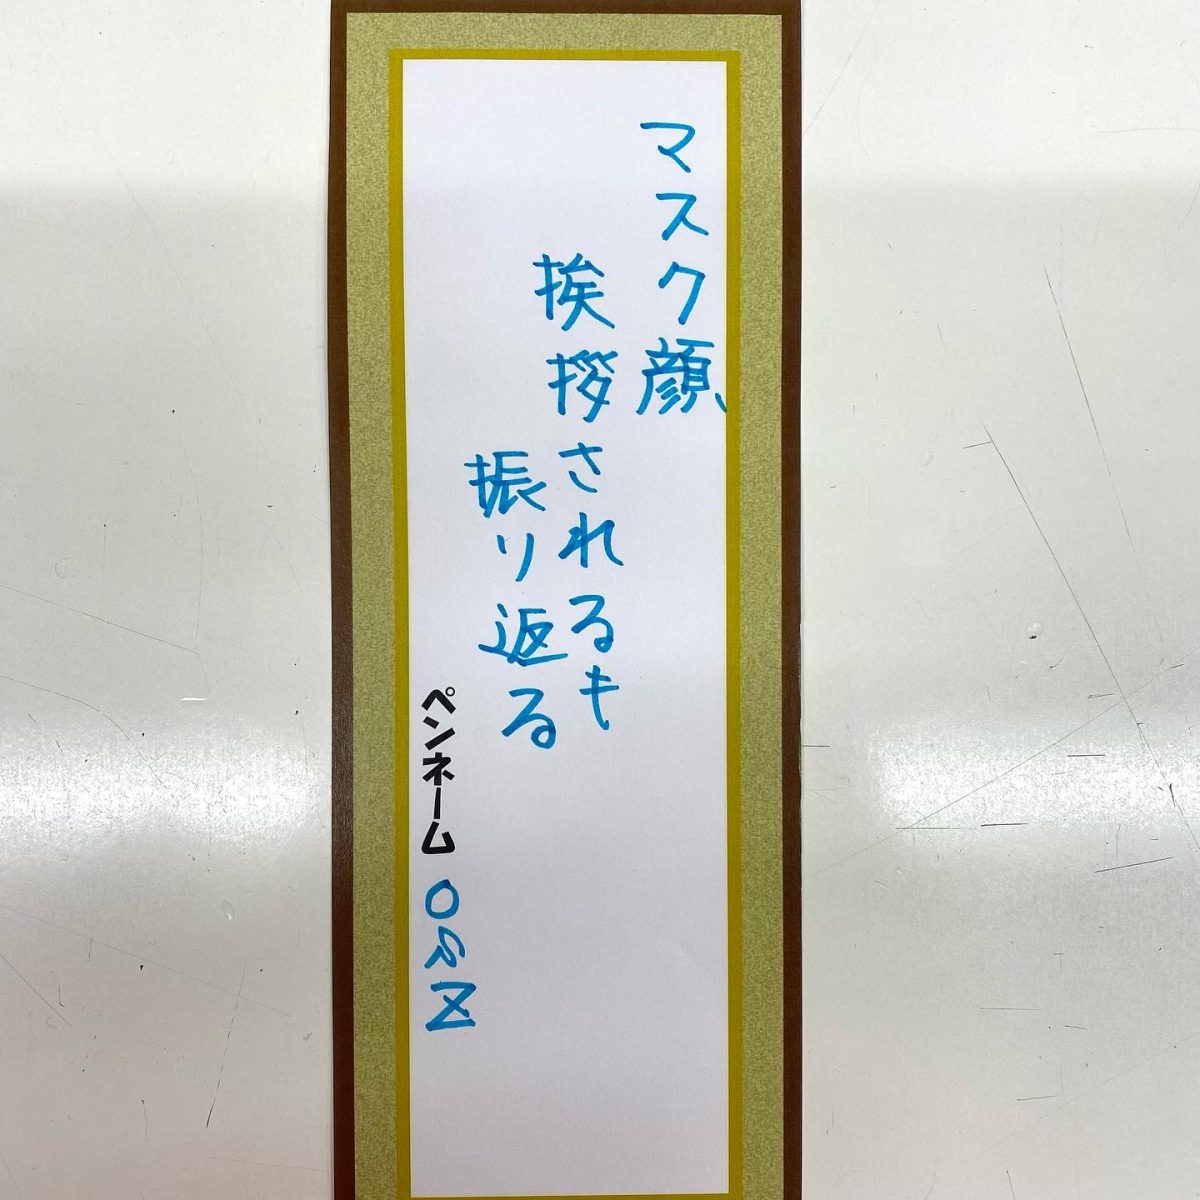 マスク顔
挨拶されるも
振り返る
ペンネーム O&Z